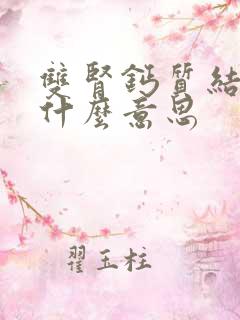 雙腎鈣質結
什麼意思
翟玉柱